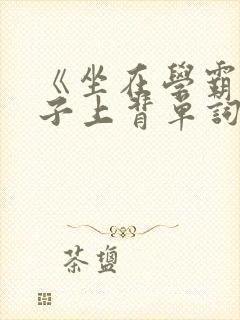 《坐在學霸
子上背單詞
茶鹽